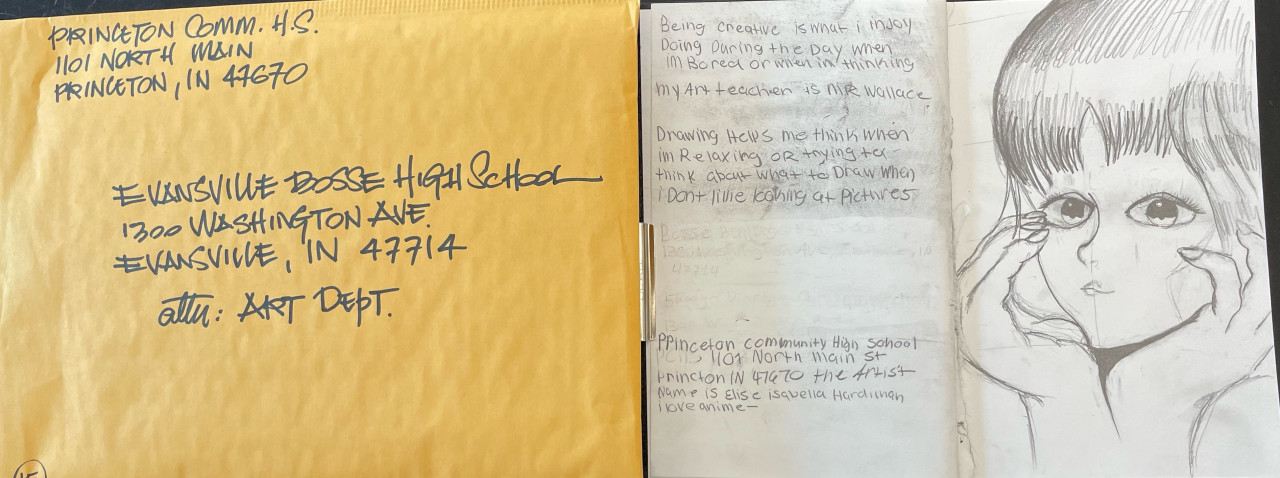 PRINCETON COMM. H.S.
1101 NORTH MAIN
PRINCETON, IN 47670
EVANSVILLE BOSSE HIGH SCHOOL
1300 WASHINGTON AVE.
EVANSVILLE, IN 47714
attn: ART DEPT.
15
Being creative is what i injoy
Doing During the Day when
im Bored or when im thinking
my Art teacher is MR Wallace
Drawing Helps me think when
im Relaxing OR trying to
think about what to Draw when
i Dont like looking at Pictures
Bosse
47714
PPinceton community High school
1101 North main st
princton IN 47670 the Artist
Name is Elise isavella Hardiman
i love anime—